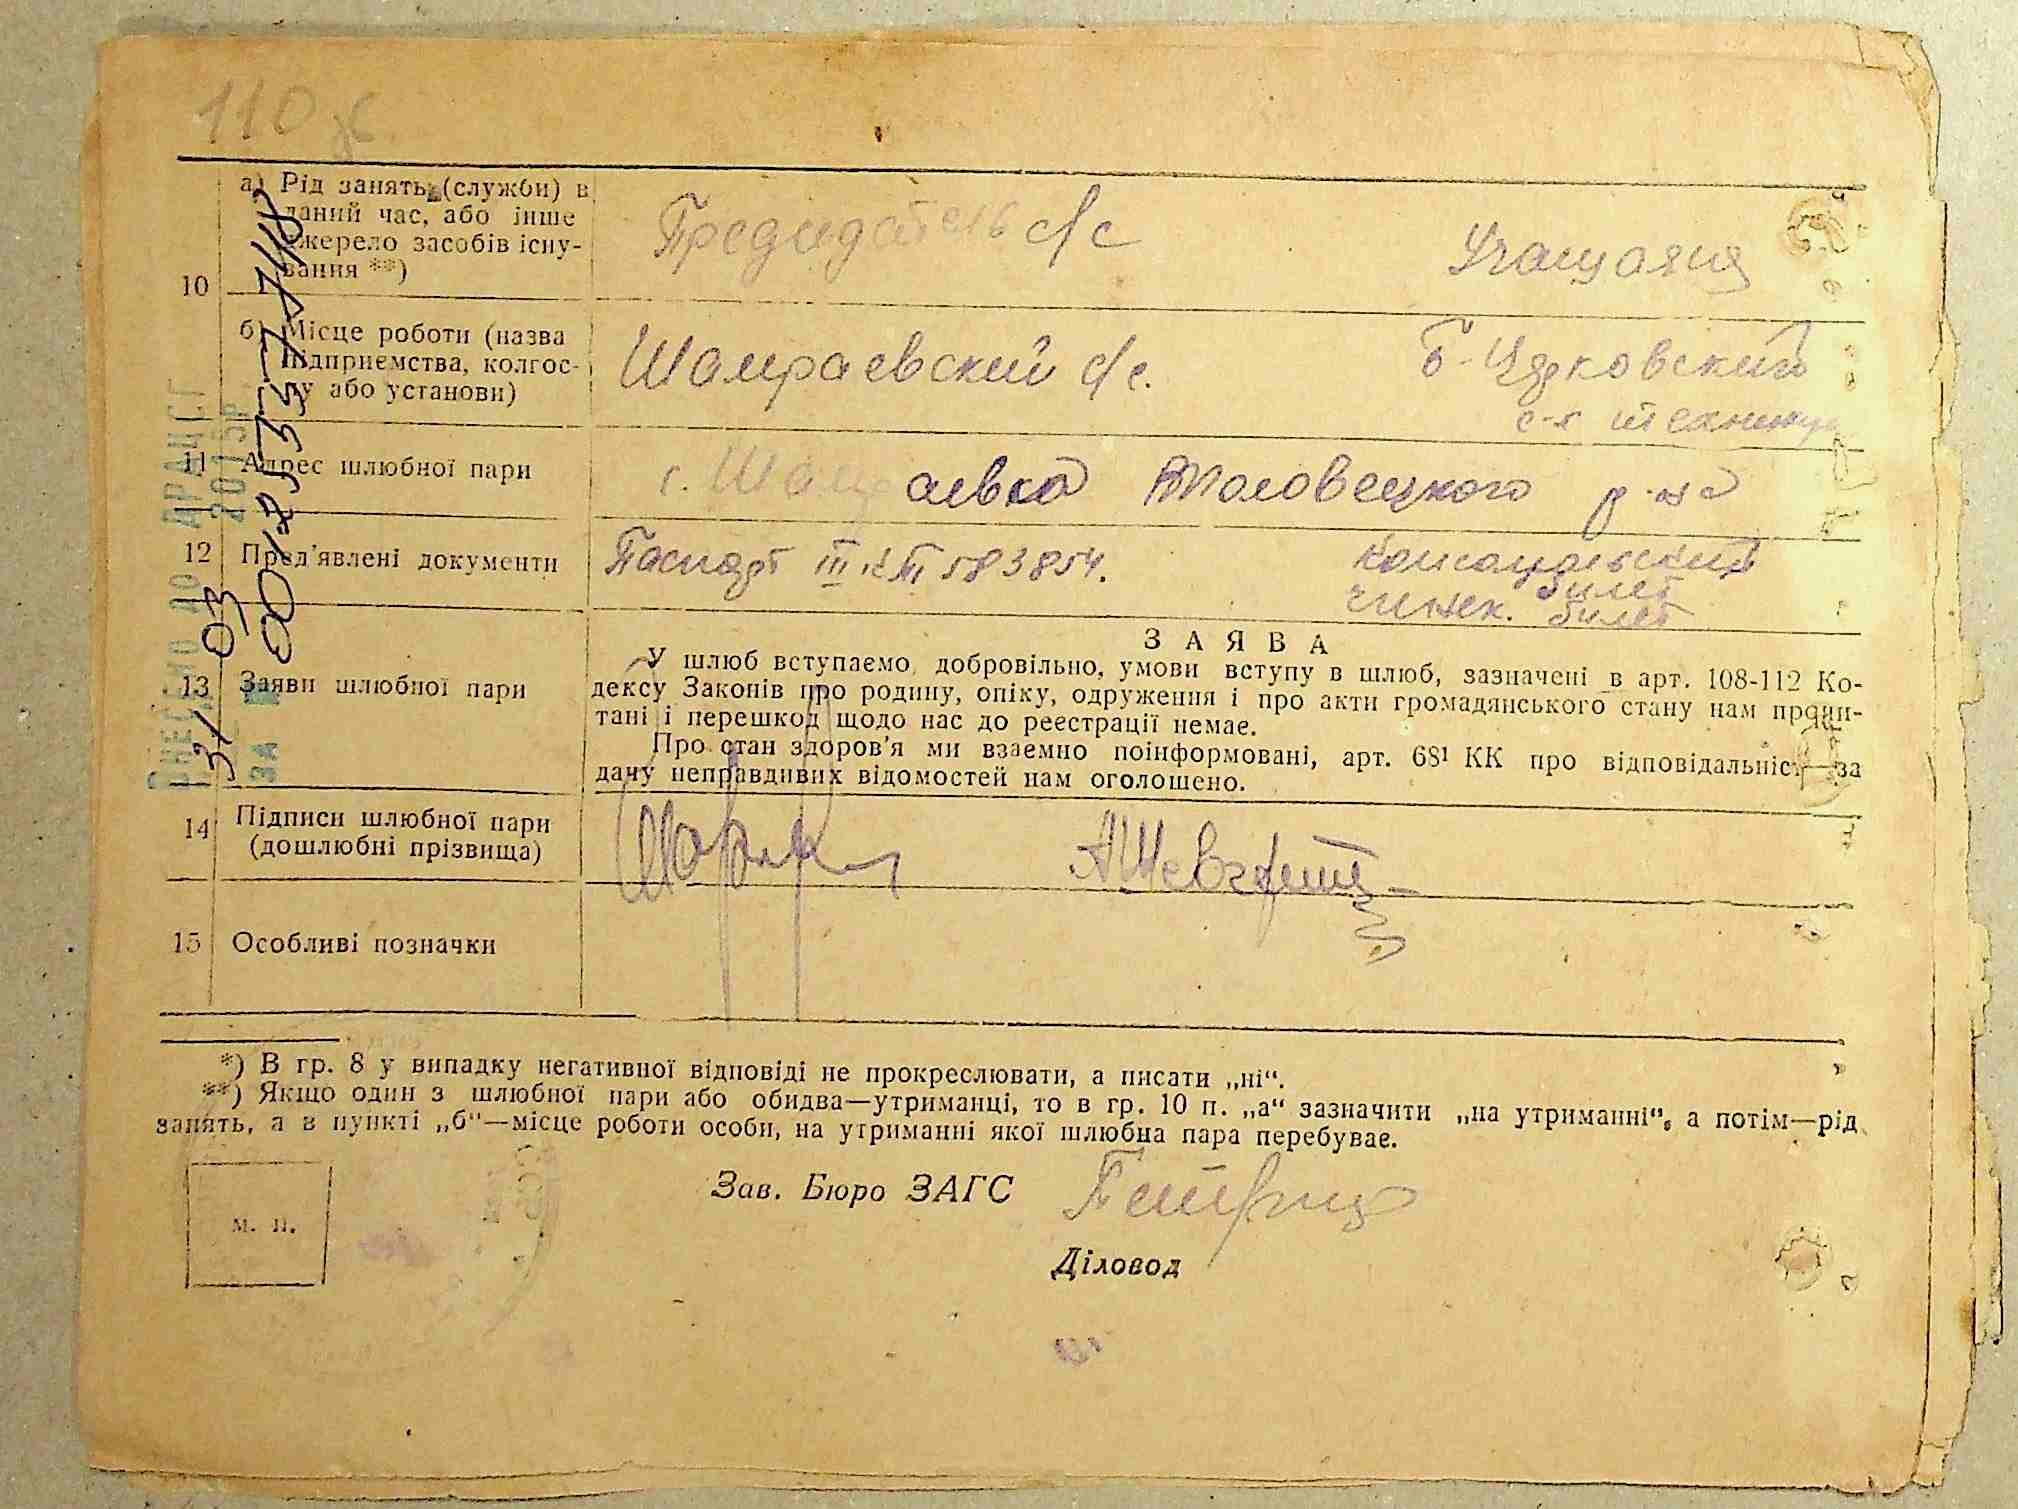 110
10
а) Рід занять (служби) в
даний час, або інше
джерело засобів існу-
вання **)
Председатель с/с
Учащаяся
б) Місце роботи (назва
підприємства, колгос-
пу або установи)
Шамраевский с/с.
Б-Церковский
с-х техникум
11 Адрес шлюбної пари
с. Шамраевка Володарского р-на
12 Пред'явлені документи
Паспорт III 583854.
Комсомольский
билет
билет
13 Заяви шлюбної пари
ЗАЯВА
У шлюб вступаємо добровільно, умови вступу в шлюб, зазначені в арт. 108-112 Ко-
дексу Законів про родину, опіку, одруження і про акти громадянського стану нам прочи-
тані і перешкод щодо нас до реестрації немає.
Про стан здоров'я ми взаємно поінформовані, арт. 68¹ КК про відповідальність за
дачу неправдивих відомостей нам оголошено.
14 Підписи шлюбної пари
(дошлюбні прізвища)
15 Особливі позначки
*) В гр. 8 у випадку негативної відповіді не прокреслювати, а писати „ні“.
**) Якщо один з шлюбної пари або обидва—утриманці, то в гр. 10 п. „а“ зазначити „на утриманні“, а потім—рід
занять, а в пункті „б“—місце роботи особи, на утриманні якої шлюбна пара перебуває.
м. п.
Зав. Бюро ЗАГС
Діловод
ВНЕСЕНО ДО ДРАЦСГ
31 03 2015р.
ЗА №